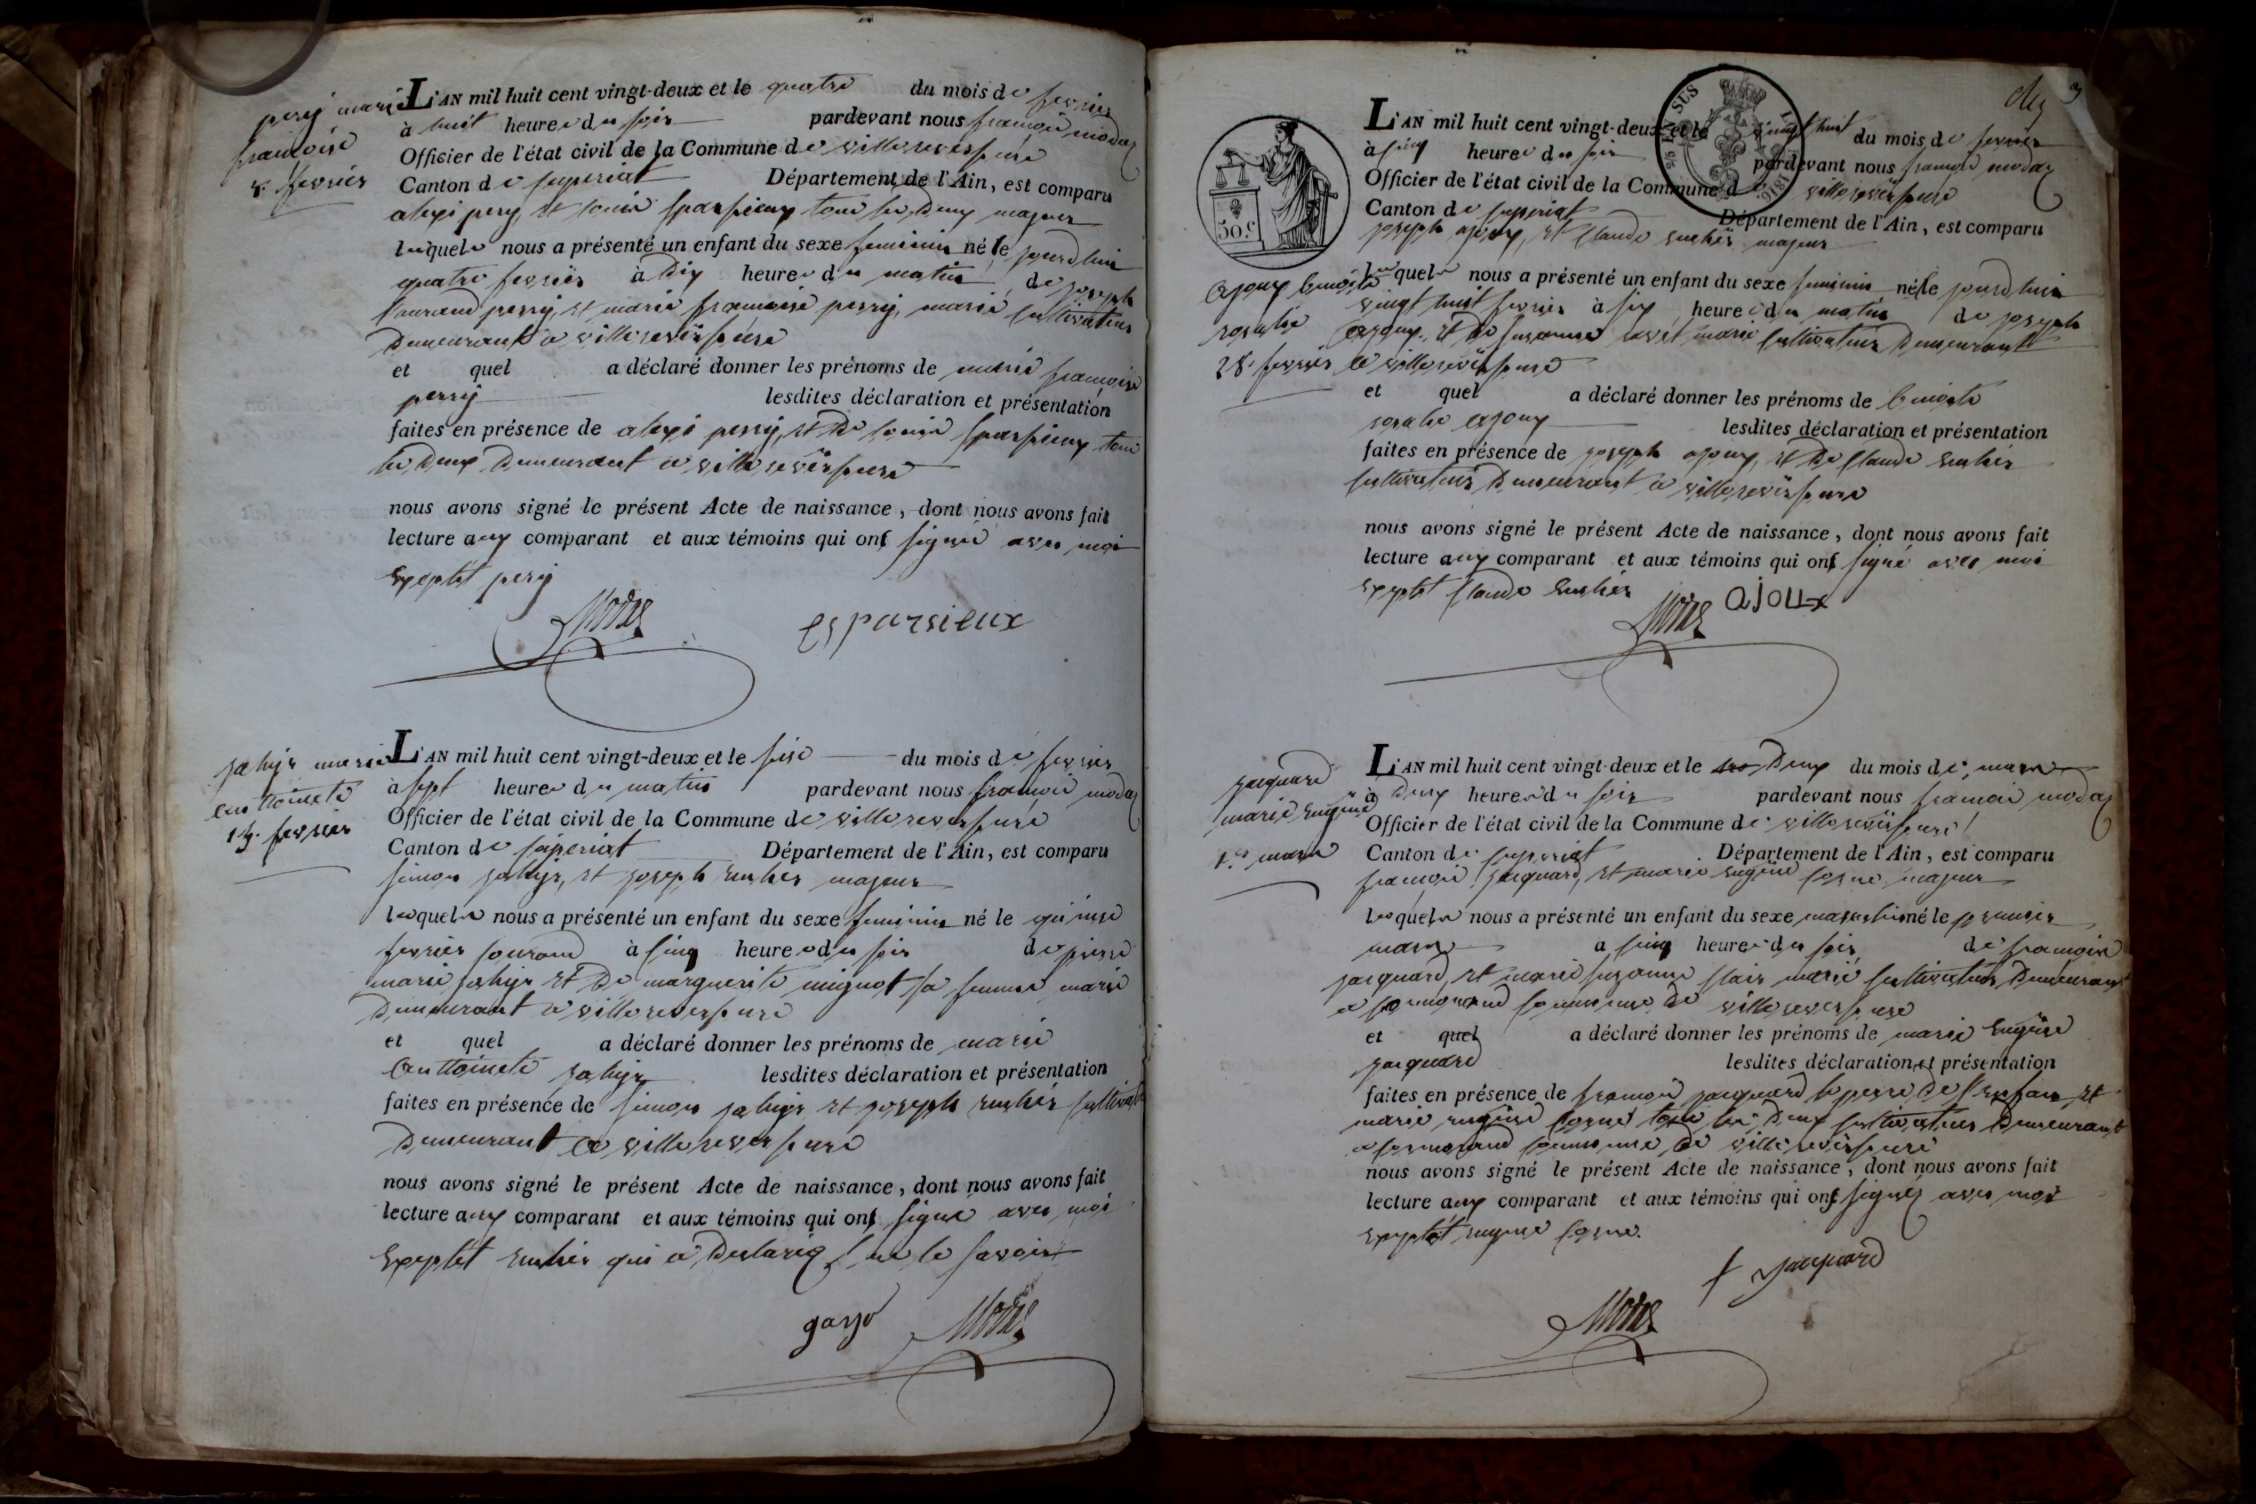 perrÿ marie
francoise
4. fevrier
L'AN mil huit cent vingt-deux et le quatre du mois de fevrier
à huit heures du soir pardevant nous francois modas
Officier de l'état civil de la Commune de villereversure
Canton de Département de l'Ain, est comparu
alexi perrÿ et tous les deux majeur
lesquels nous a présenté un enfant du sexe feminin né le jourd'huis
quatre fevrier à dix heures du matin de joseph
perrÿ, et marie francoise perrÿ, marié cultivateur
demeurant a villereversure
et quel a déclaré donner les prénoms de marie francoise
perrÿ lesdites déclaration et présentation
faites en présence de alexi perrÿ, et de tous
les deux demeurant a villereversure
nous avons signé le présent Acte de naissance, dont nous avons fait
lecture aux comparant et aux témoins qui ont signé avec moi
exeptét perrÿ
esparsieux
marie
enttoinete
15. fevrier
L'AN mil huit cent vingt-deux et le seise du mois de fevrier
à sept heures du matin pardevant nous francois modas
Officier de l'état civil de la Commune de villereversure
Canton de Département de l'Ain, est comparu
simon et joseph majeur
lesquels nous a présenté un enfant du sexe feminin né le quinse
fevrier courand à cinq heures du soir de pierre
marie et de marguerite mignot sa femme marié
demeurant a villereversure
et quel a déclaré donner les prénoms de marie
enttoinete lesdites déclaration et présentation
faites en présence de simon et joseph
demeurant a villereversure
nous avons signé le présent Acte de naissance, dont nous avons fait
lecture aux comparant et aux témoins qui ont signé avec moi
exeptét qui a ne le savoir
30.c
L'AN mil huit cent vingt-deux et le vingt huit du mois de fevrier
à heures du soir pardevant nous francois modas
Officier de l'état civil de la Commune d villereversure
Canton de Département de l'Ain, est comparu
joseph ajoux, et claude majeur
ajoux benoite
rosalie
28. fevrier
lesquels nous a présenté un enfant du sexe feminin né le jourd'huis
vingt huit fevrier à six heures du matin de joseph
ajoux, et de susanne marié cultivateur demeurant
a villereversure
et quel a déclaré donner les prénoms de benoite
rosalie ajoux lesdites déclaration et présentation
faites en présence de joseph ajoux, et de claude
cultivateur demeurant a villereversure
nous avons signé le présent Acte de naissance, dont nous avons fait
lecture aux comparant et aux témoins qui ont signé avec moi
exeptét claude
ajoux
jacquard
marie eugene
1.er mars
L'AN mil huit cent vingt-deux et le deux du mois de mars
à deux heures du soir pardevant nous francois modas
Officier de l'état civil de la Commune de villereversure
Canton de Département de l'Ain, est comparu
francois jacquard, et marie eugene majeur
lesquels nous a présenté un enfant du sexe masculin né le premier
mars a cinq heures du soir de francois
jacquard, et marie susanne marié cultivateur demeurant
a commune de villereversure
et quel a déclaré donner les prénoms de marie eugene
jacquard lesdites déclaration et présentation
faites en présence de francois jacquard le perre de l'enfan et
marie eugene tous les deux cultivateur demeurant
a commune de villereversure
nous avons signé le présent Acte de naissance, dont nous avons fait
lecture aux comparant et aux témoins qui ont signéz avec moi
exeptét eugene
f jacquard